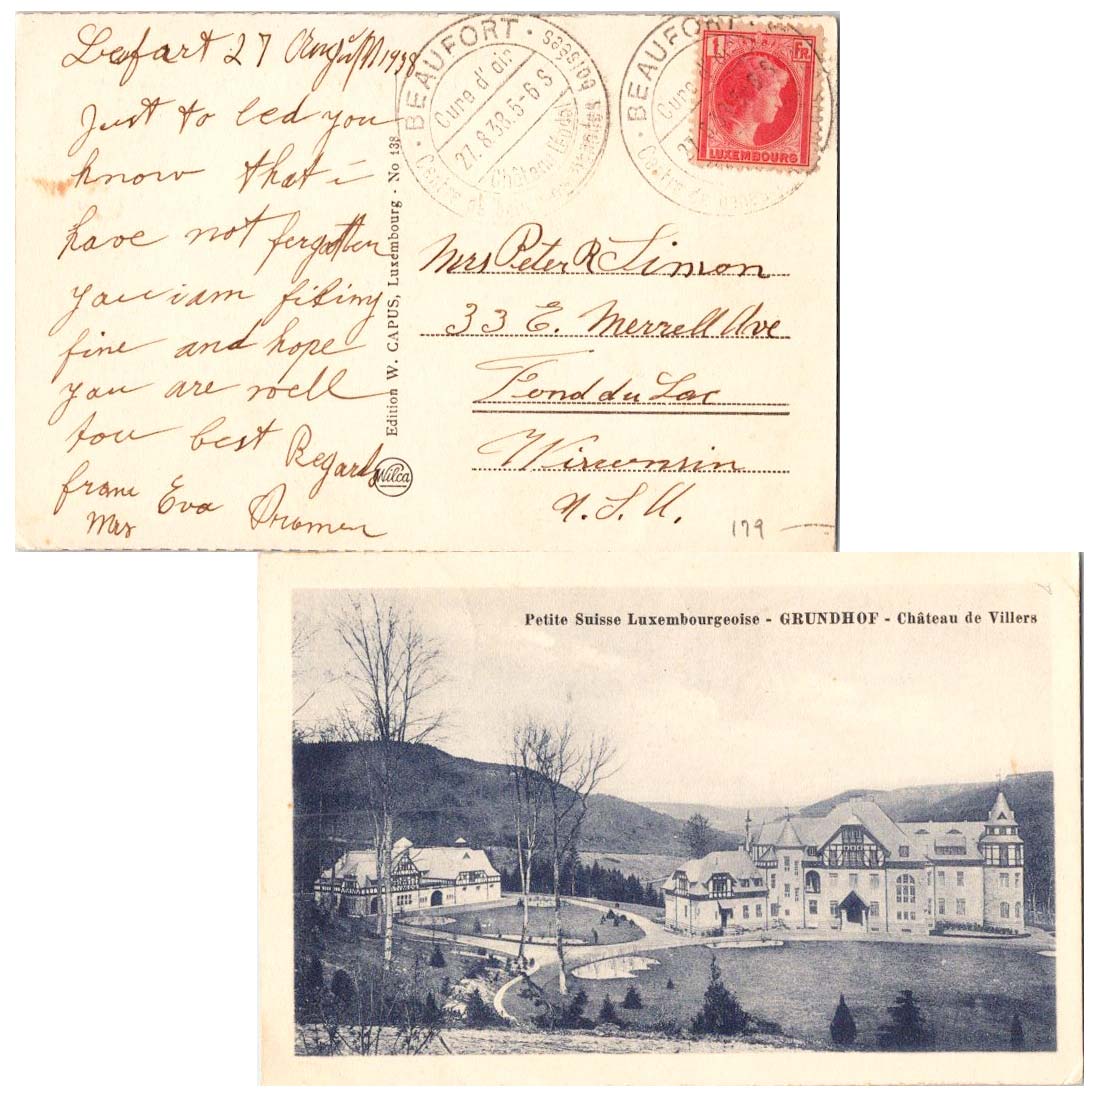 Befort 27 August 1938
Just to led you
know that i
have not forgotten
you i am filing
fine and hope
you are well
tou best Regards
from Eva
Mrs
Edition W. CAPUS, Luxembourg · No 138
Wilca
BEAUFORT
Cure d'air
27.8.38.5-6 S
Château féodal
BEAUFORT
Cure
27
1 FR.
LUXEMBOURG
Mrs Peter R Simon
33 E. Merrell Ave
Fond du Lac
Wisconsin
U. S. A.
179
Petite Suisse Luxembourgeoise - GRUNDHOF - Château de Villers